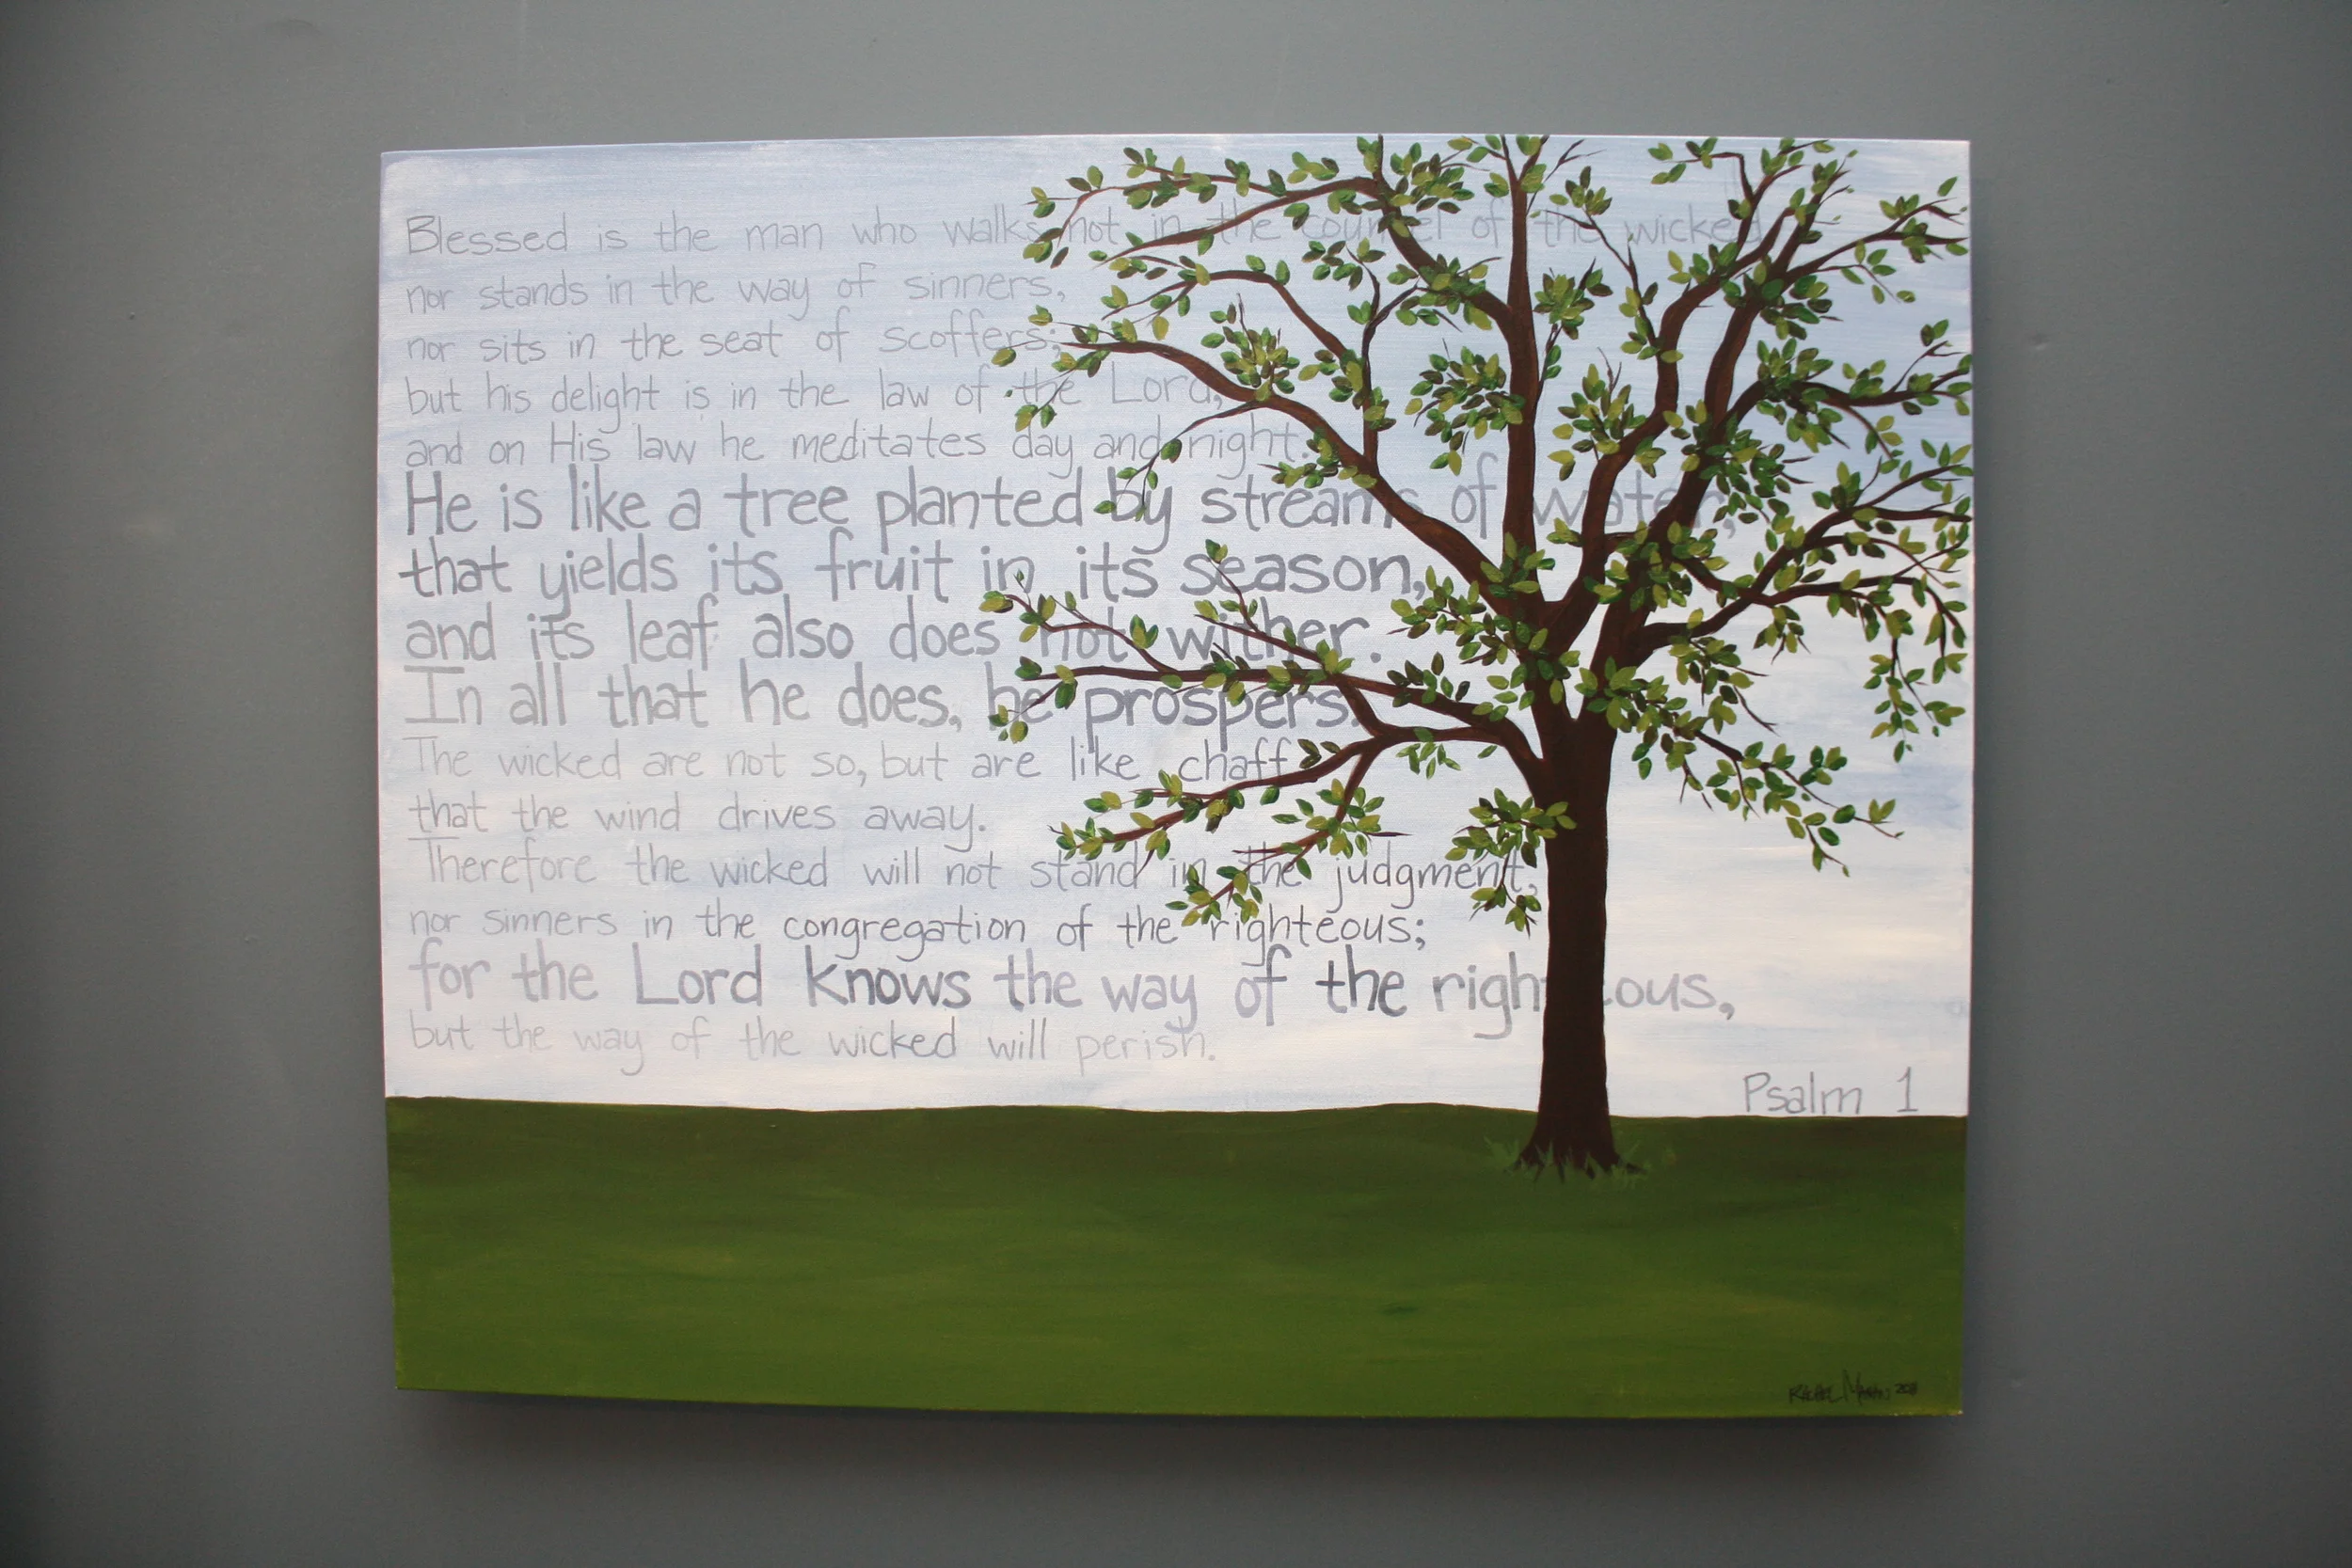 Blessed is the man who walks not in the counsel of the wicked
nor stands in the way of sinners,
nor sits in the seat of scoffers;
but his delight is in the law of the Lord,
and on His law he meditates day and night.
He is like a tree planted by streams of water,
that yields its fruit in its season,
and its leaf also does not wither.
In all that he does, he prospers.
The wicked are not so, but are like chaff
that the wind drives away.
Therefore the wicked will not stand in the judgment,
nor sinners in the congregation of the righteous;
for the Lord knows the way of the righteous,
but the way of the wicked will perish.
Psalm 1
Rachel